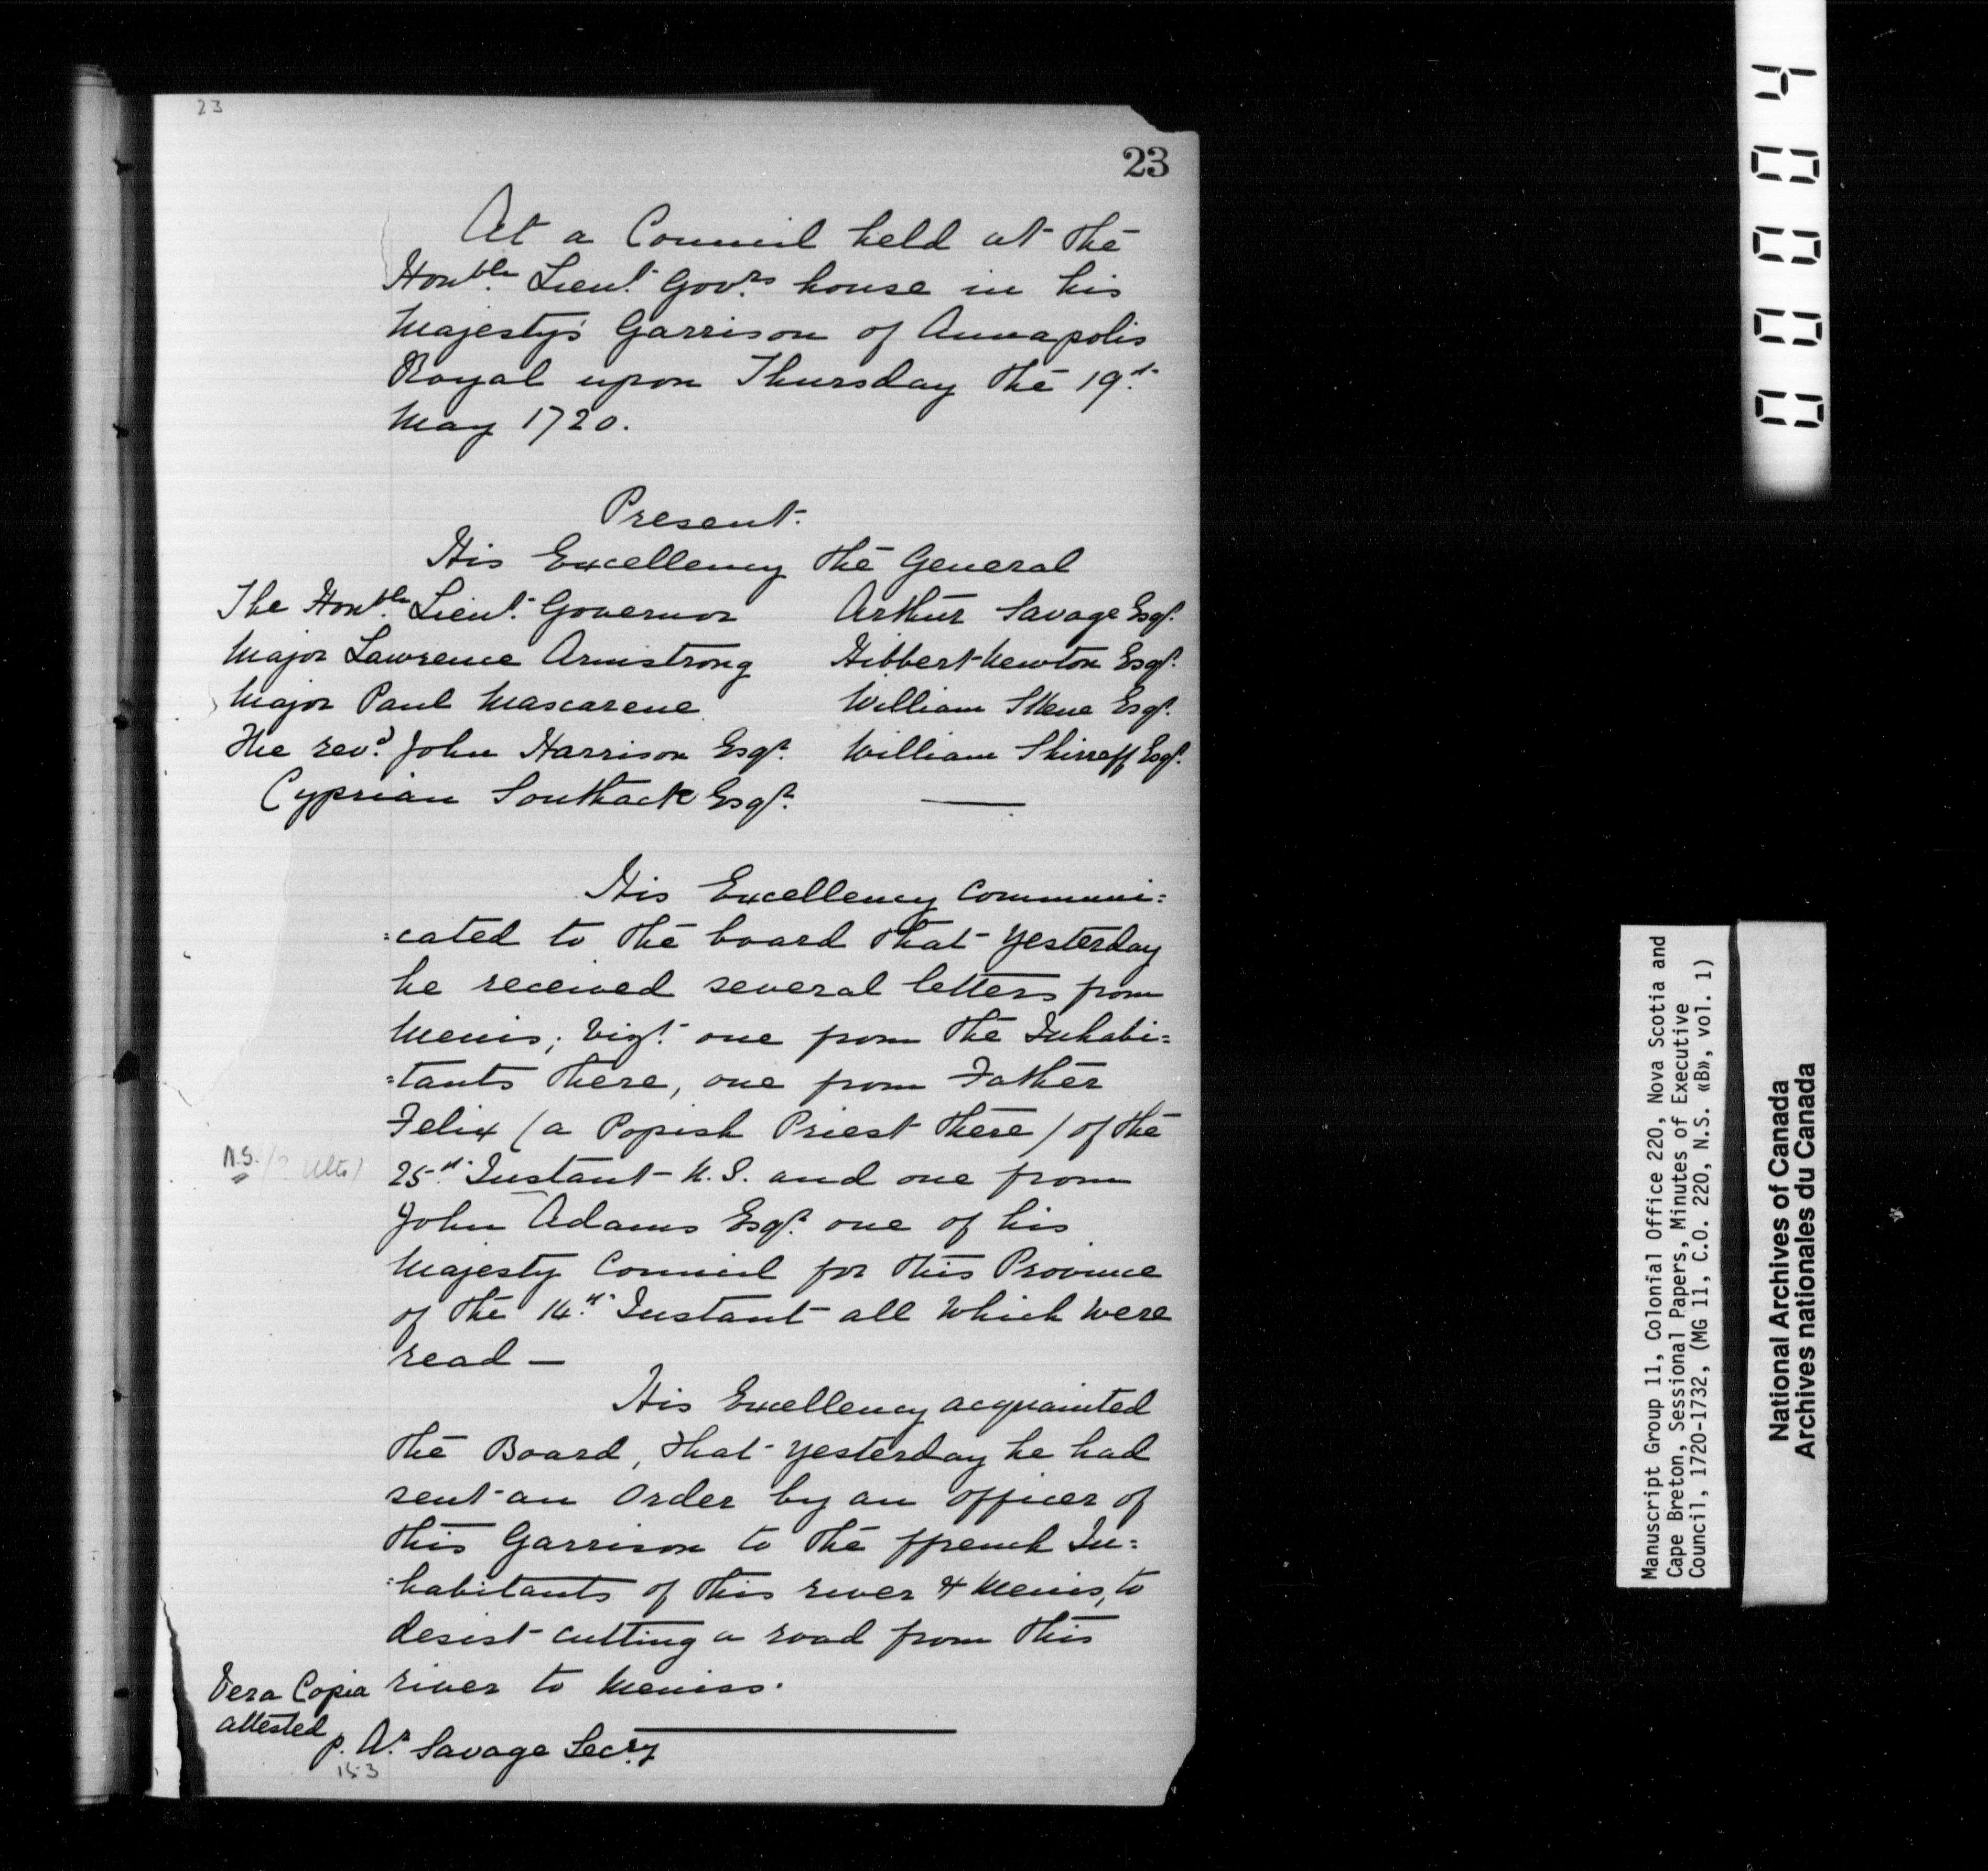 23
23
At a Council held at the
Honble. Lieut. Govrs house in his
Majesty's Garrison of Annapolis
Royal upon Thursday the 19th
May 1720.
Present.
His Excellency the General
The Honble. Lieut. Governor
Major Lawrence Armstrong
Major Paul Mascarene
The revd. John Harrison Esqr.
Cyprian Southack Esqr.
Arthur Savage Esqr.
Hibbert Newton Esqr.
William Skene Esqr.
William Shirreff Esqr.
His Excellency communi=
=cated to the board that yesterday
he received several letters from
Menis; Vizt. one from the Inhabi=
=tants there, one from Father
Felix (a Popish Priest there) of the
25th Instant N.S. and one from
John Adams Esqr. one of his
Majesty Council for this Province
of the 14th Instant all which were
read —
N.S. (? Ulto)
His Excellency acquainted
the Board, that yesterday he had
sent an Order by an officer of
this Garrison to the ffrench In=
=habitants of this river & Menis, to
desist cutting a road from this
river to Meniss.
Vera Copia
attested
p. Ar. Savage Secry
153
00004
Manuscript Group 11, Colonial Office 220, Nova Scotia and
Cape Breton, Sessional Papers, Minutes of Executive
Council, 1720-1732, (MG 11, C.O. 220, N.S. «B», vol. 1)
National Archives of Canada
Archives nationales du Canada